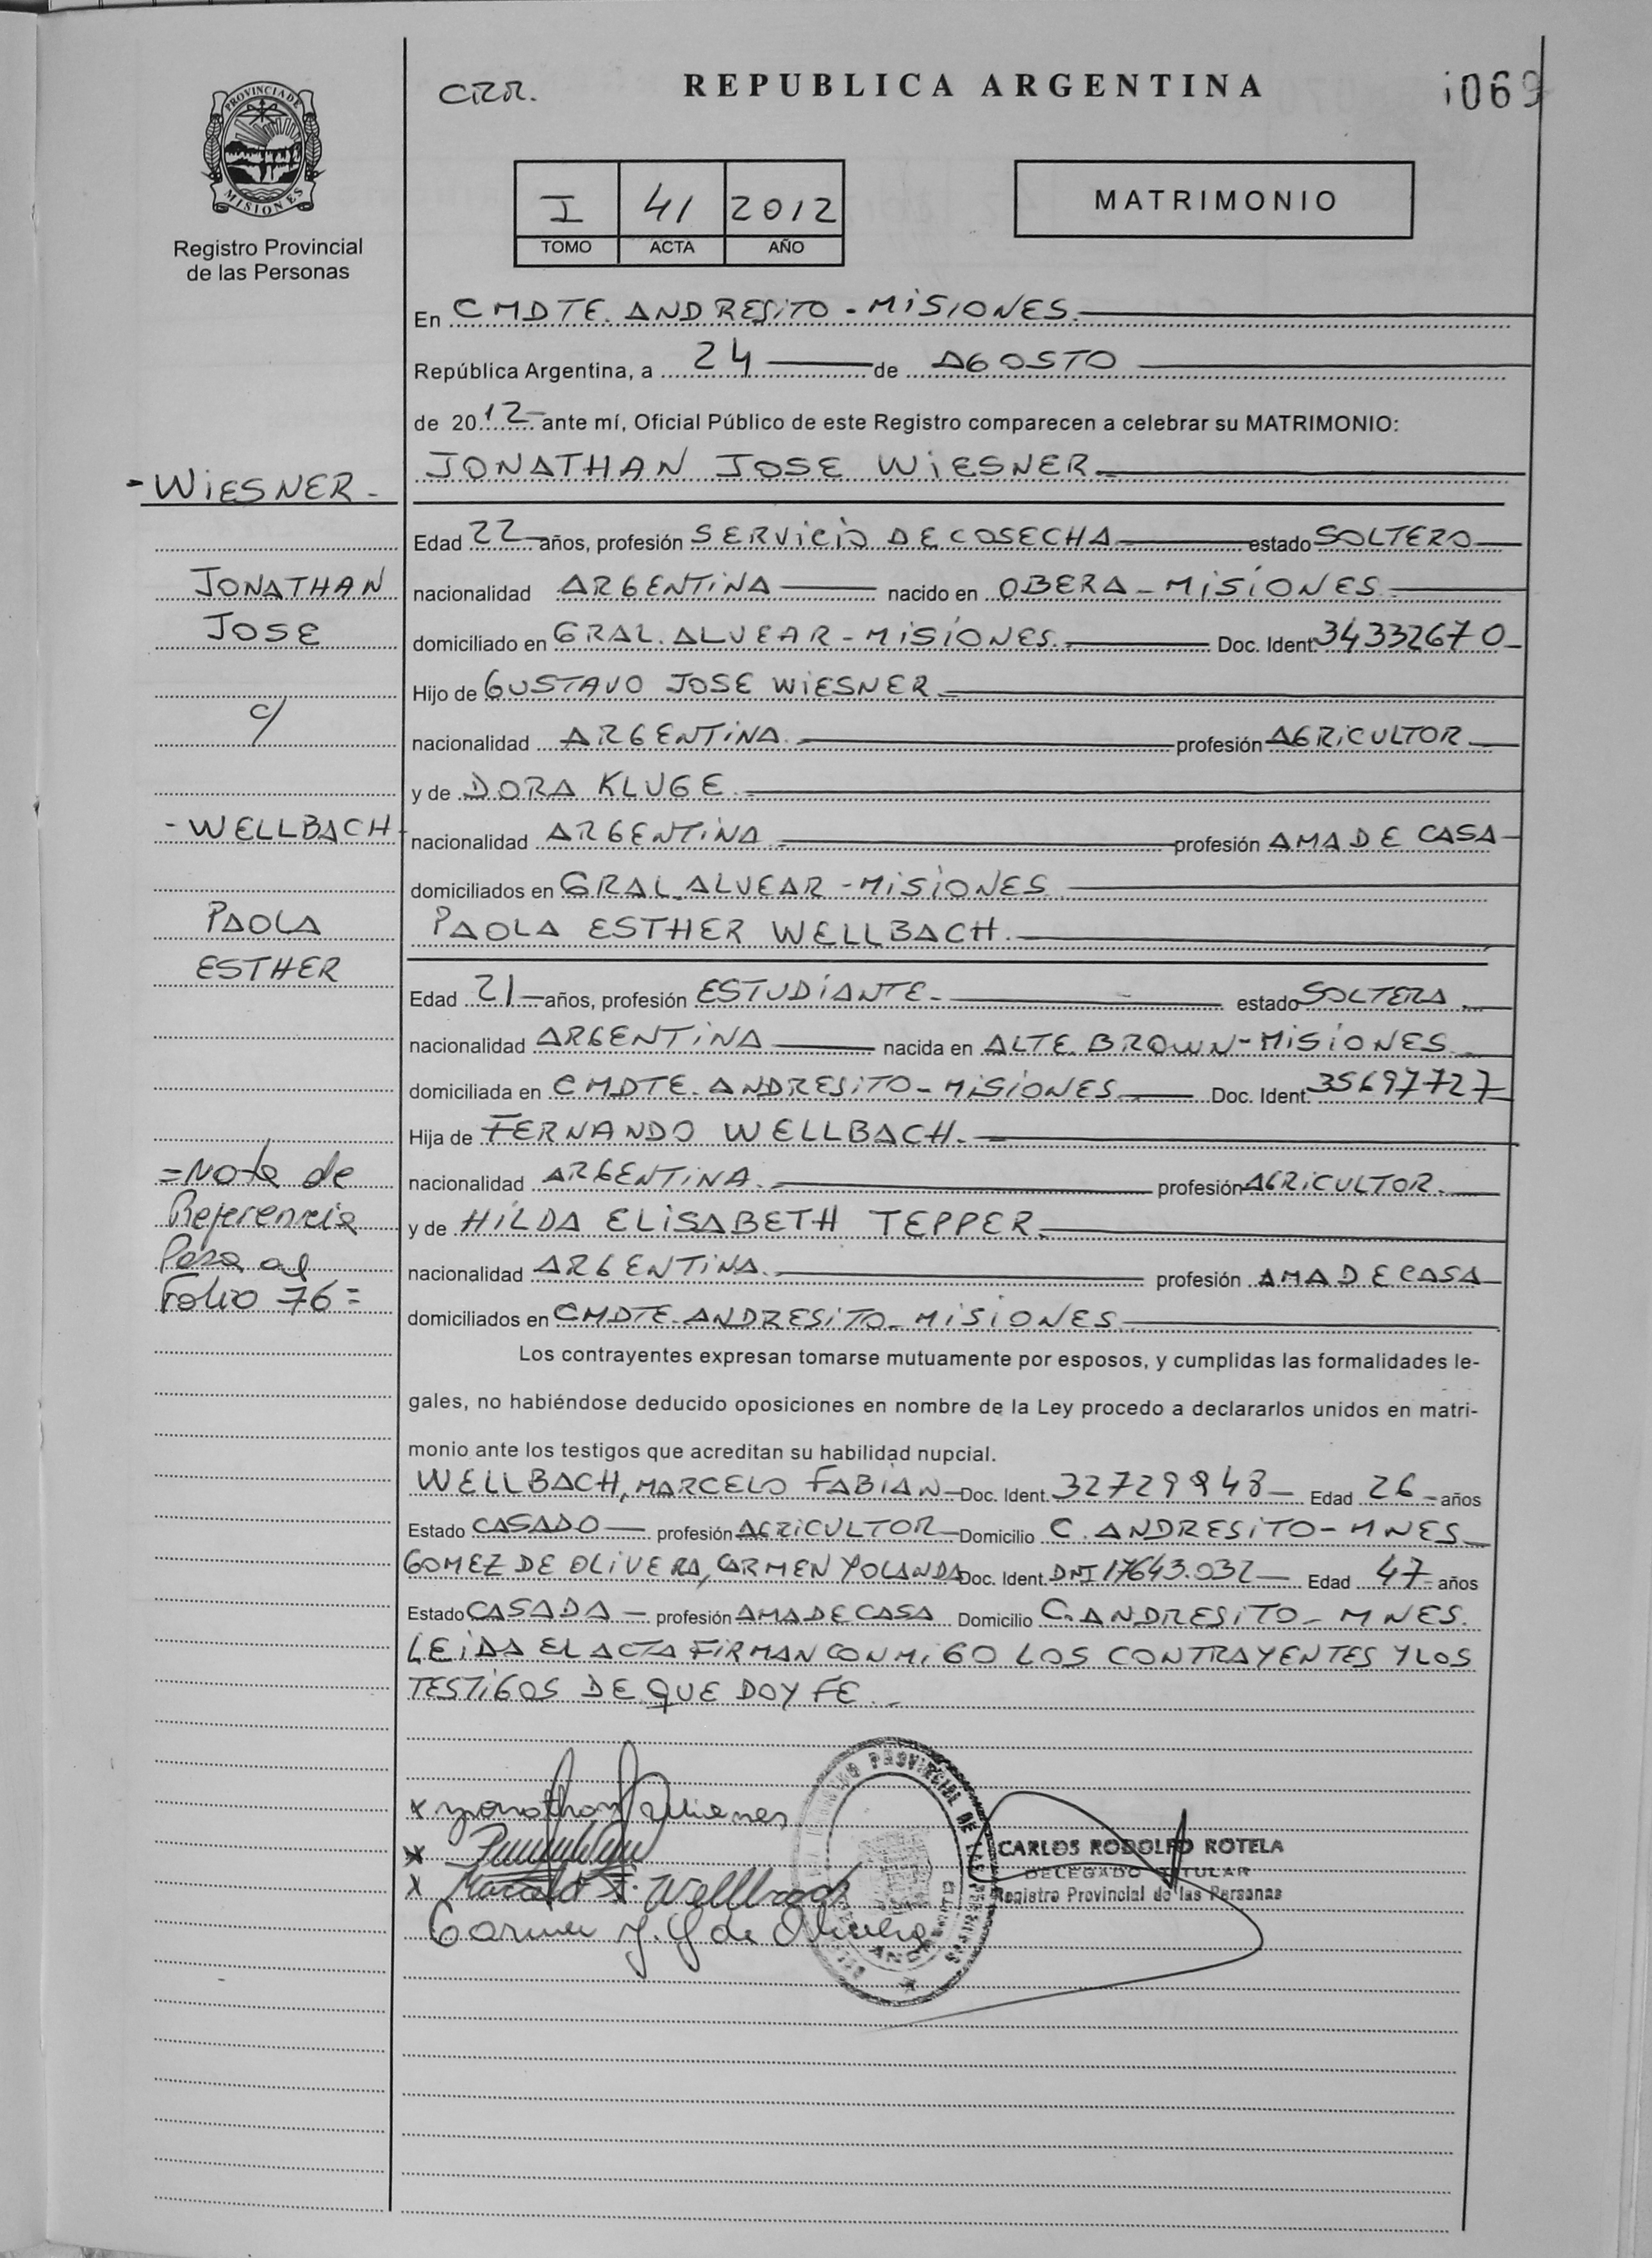 PROVINCIA DE
MISIONES
Registro Provincial
de las Personas
CRR.
REPUBLICA ARGENTINA
069
I 41 2012
TOMO ACTA AÑO
MATRIMONIO
En CMDTE. ANDRESITO - MISIONES.
República Argentina, a 24 de AGOSTO
de 2012 ante mí, Oficial Público de este Registro comparecen a celebrar su MATRIMONIO:
JONATHAN JOSE WIESNER
Edad 22 años, profesión SERVICIO DE COSECHA estado SOLTERO
nacionalidad ARGENTINA nacido en OBERA - MISIONES
domiciliado en GRAL. ALVEAR - MISIONES. Doc. Ident. 34332670
Hijo de GUSTAVO JOSE WIESNER
nacionalidad ARGENTINA profesión AGRICULTOR
y de DORA KLUGE
nacionalidad ARGENTINA profesión AMA DE CASA
domiciliados en GRAL. ALVEAR - MISIONES
PAOLA ESTHER WELLBACH.
Edad 21 años, profesión ESTUDIANTE estado SOLTERA
nacionalidad ARGENTINA nacida en ALTE. BROWN - MISIONES
domiciliada en CMDTE. ANDRESITO - MISIONES Doc. Ident. 35697727
Hija de FERNANDO WELLBACH.
nacionalidad ARGENTINA. profesión AGRICULTOR.
y de HILDA ELISABETH TEPPER.
nacionalidad ARGENTINA. profesión AMA DE CASA
domiciliados en CMDTE. ANDRESITO - MISIONES
Los contrayentes expresan tomarse mutuamente por esposos, y cumplidas las formalidades le-
gales, no habiéndose deducido oposiciones en nombre de la Ley procedo a declararlos unidos en matri-
monio ante los testigos que acreditan su habilidad nupcial.
WELLBACH, MARCELO FABIAN Doc. Ident. Edad 26 años
Estado CASADO profesión AGRICULTOR Domicilio C. ANDRESITO - MNES
GOMEZ DE OLIVERA, CARMEN YOLANDA Doc. Ident. DNI 17643.032 Edad 47 años
Estado CASADA profesión AMA DE CASA Domicilio C. ANDRESITO - MNES.
LEIDA EL ACTA FIRMAN CONMIGO LOS CONTRAYENTES Y LOS
TESTIGOS DE QUE DOY FE.
- WIESNER -
JONATHAN
JOSE
c/
- WELLBACH
PAOLA
ESTHER
=Nota de
Referencia
Pasa al
Folio 76=
Marcelo F. Wellbach
Carmen Y. G de Olivera
CARLOS RODOLFO ROTELA
DELEGADO TITULAR
Registro Provincial de las Personas